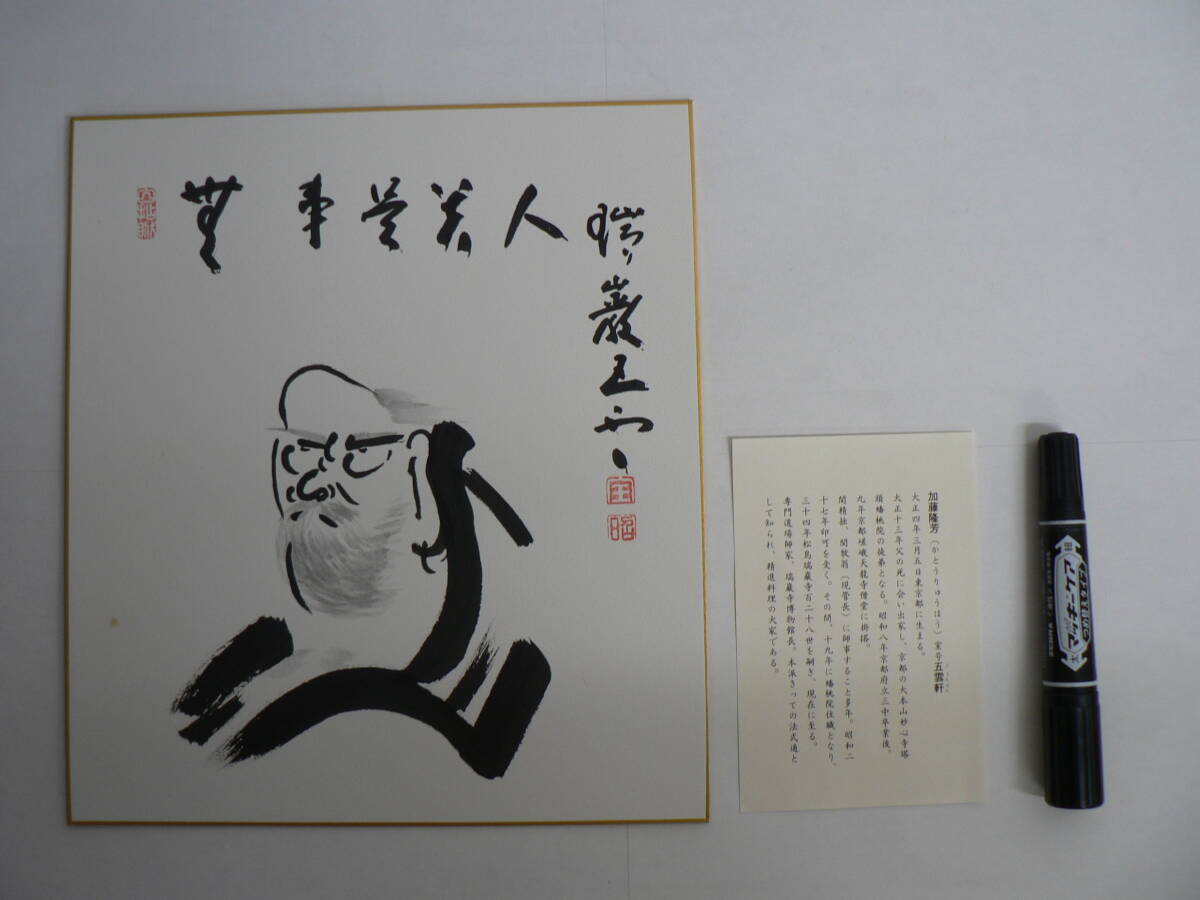 無事是美人
瑞巌五雲
加藤隆芳(かとうりゅうほう)室号五雲軒
大正四年三月五日東京都に生まる。
大正十三年父の死に会い出家し、京都の大本山妙心寺塔
頭蟠桃院の徒弟となる。昭和八年京都府立三中卒業後、
九年京都嵯峨天龍寺僧堂に掛搭。
関精拙、関牧翁(現管長)に師事すること多年。昭和二
十七年印可を受く。その間、十九年に蟠桃院住職となり、
三十四年松島瑞巌寺百二十八世を嗣ぎ、現在に至る。
専門道場師家、瑞巌寺博物館長。本派きっての法式通と
して知られ、精進料理の大家である。
マッキーケア
太